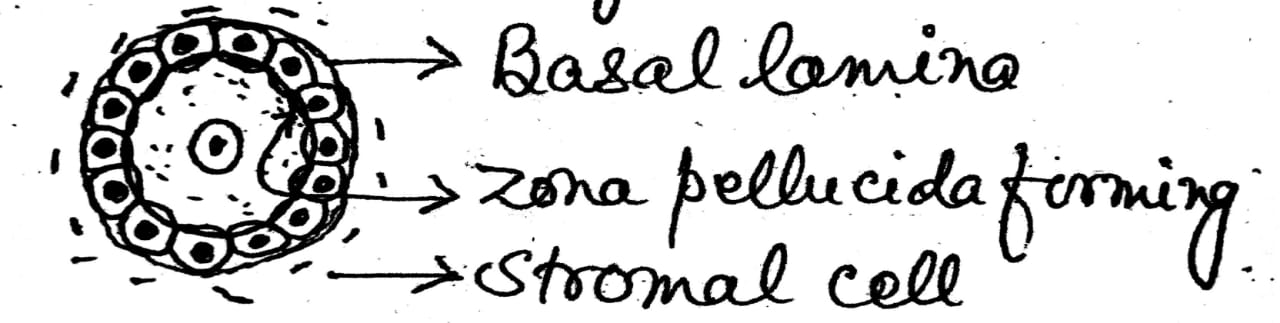 Basal lamina
Zona pellucida forming
Stromal cell